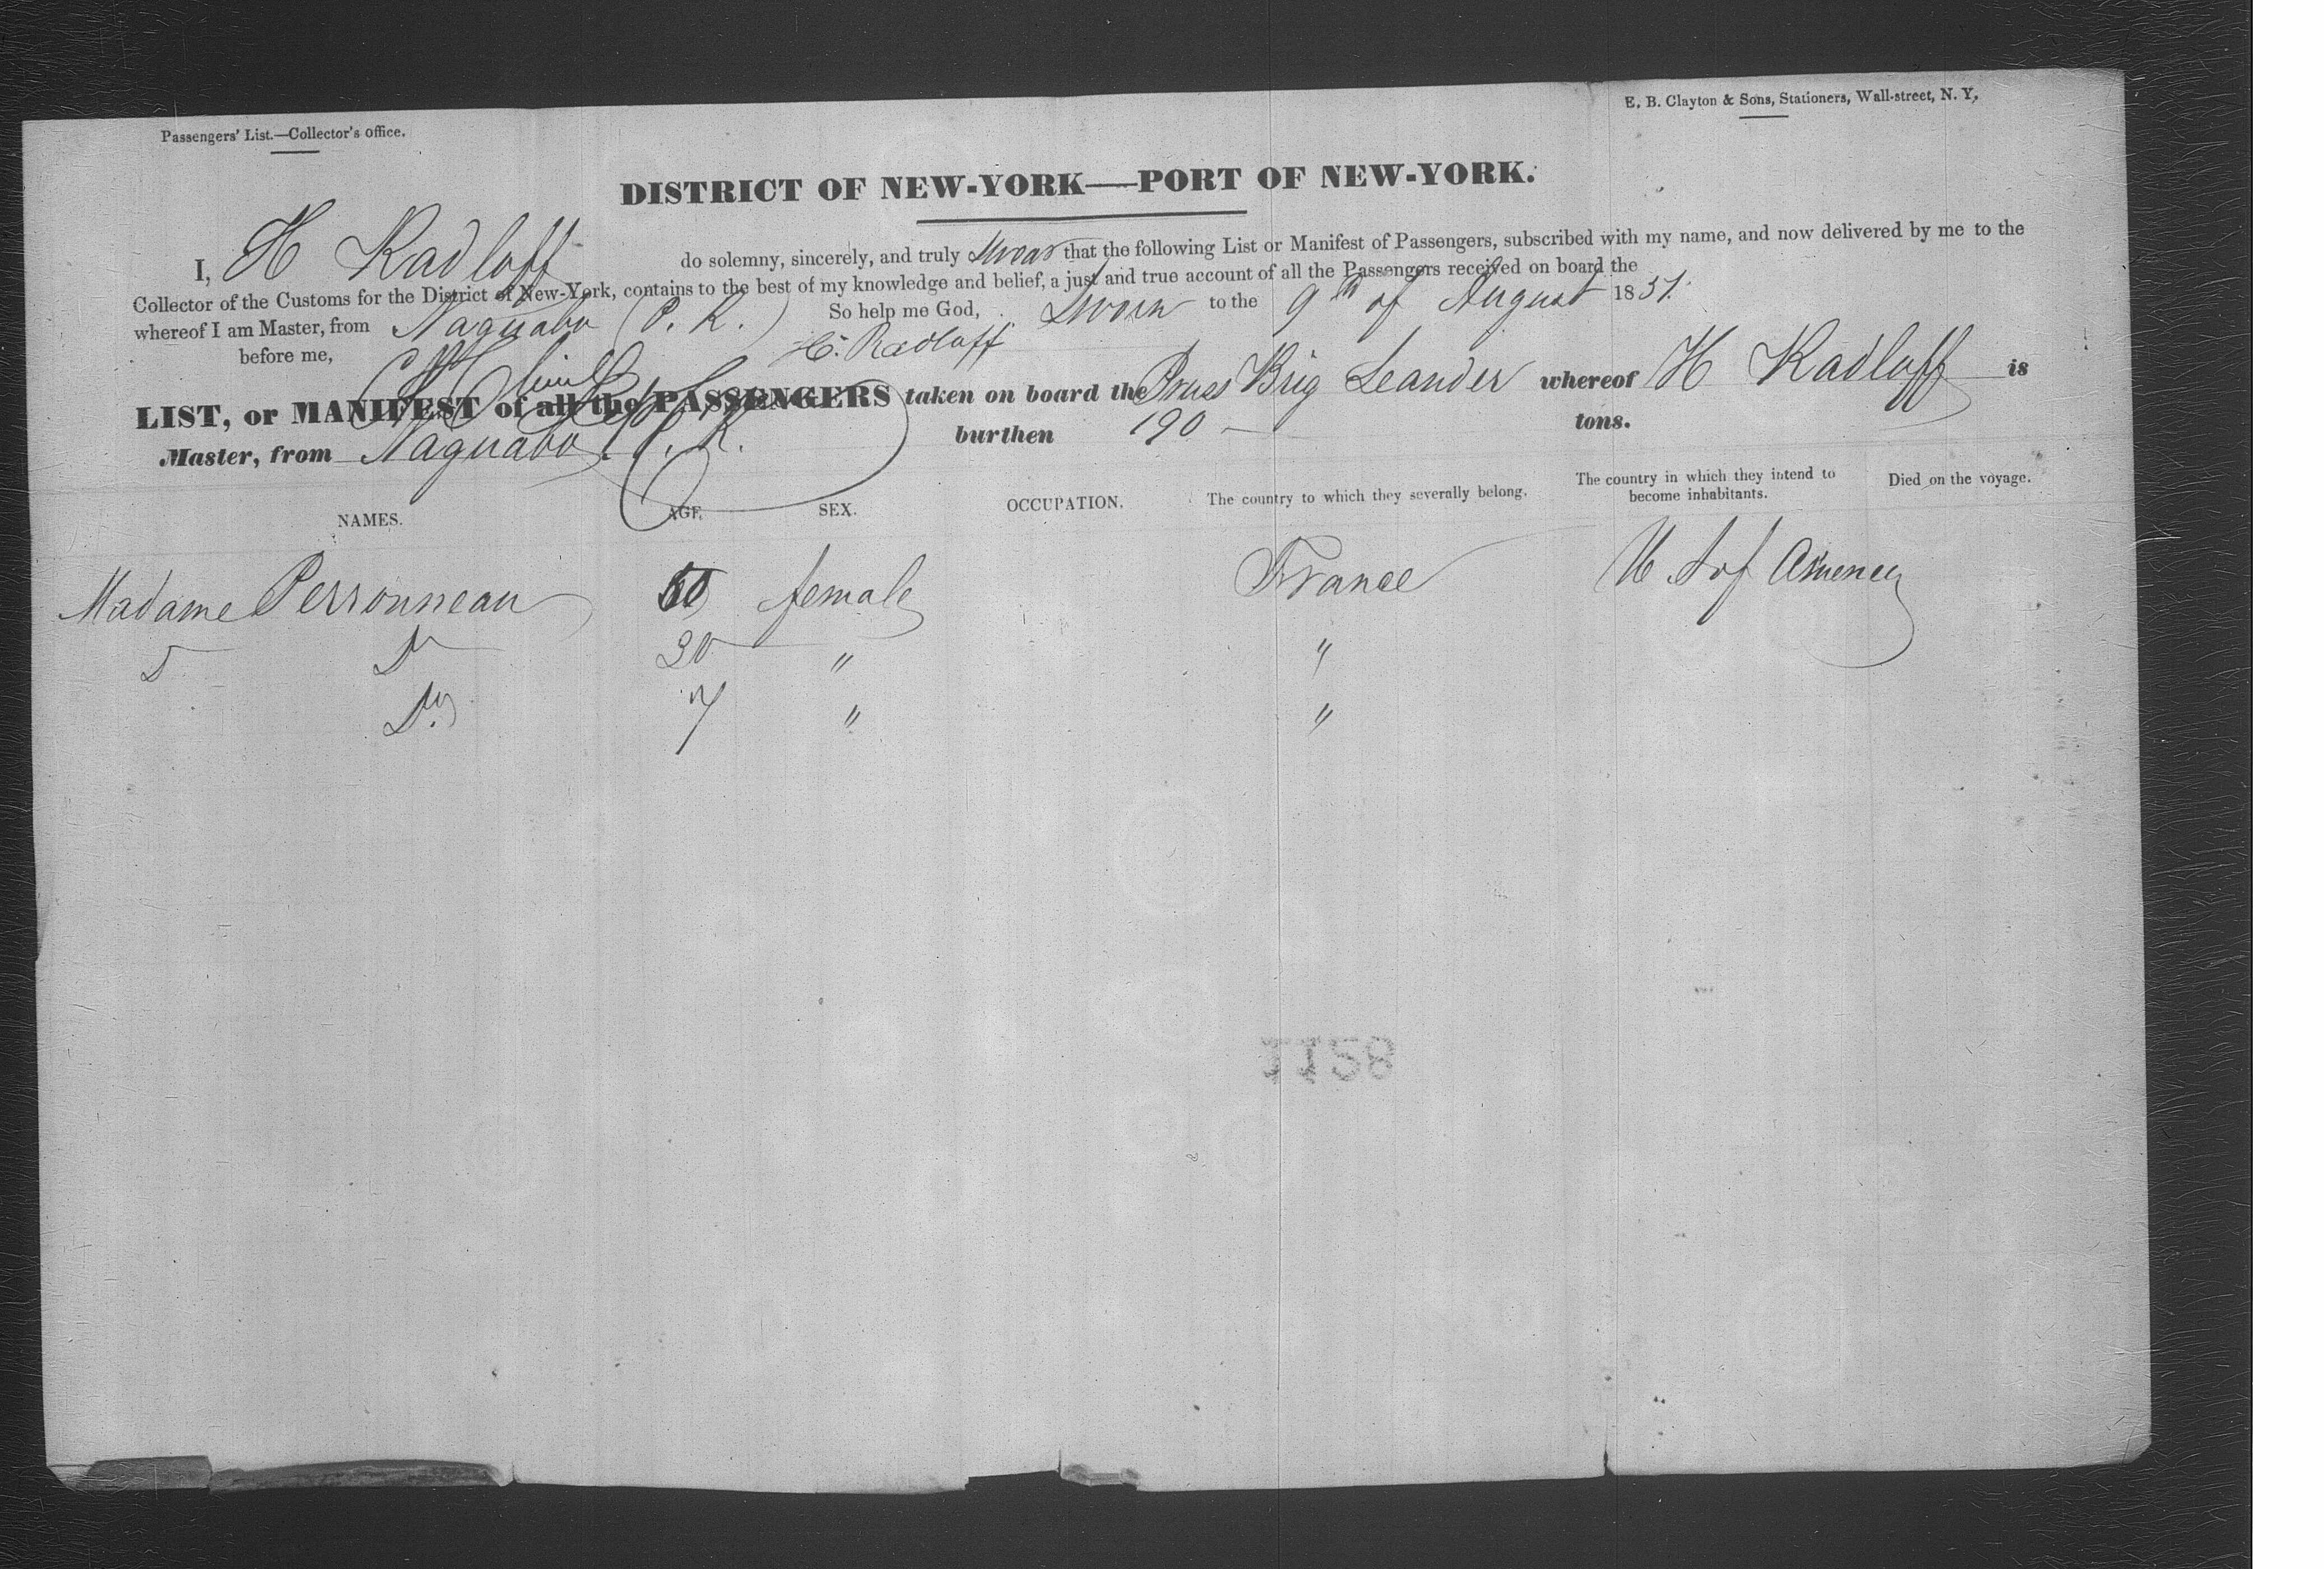 Passengers' List.—Collector's office.
E. B. Clayton & Sons, Stationers, Wall-street, N. Y,
DISTRICT OF NEW-YORK—PORT OF NEW-YORK.
I, H Radloff do solemny, sincerely, and truly swear that the following List or Manifest of Passengers, subscribed with my name, and now delivered by me to the
Collector of the Customs for the District of New-York, contains to the best of my knowledge and belief, a just and true account of all the Passengers received on board the
whereof I am Master, from Naguabo (P. R.) So help me God, Sworn to the 9th of August 1851.
before me, H. Radloff
LIST, or MANIFEST of all the PASSENGERS taken on board the Pruss Brig Leander whereof H Radloff is
Master, from Naguabo P. R. burthen 190 — tons.
NAMES. AGE. SEX. OCCUPATION. The country to which they severally belong. The country in which they intend to become inhabitants. Died on the voyage.
Madame Perronneau female France U S of America
D Do 30 " "
Do 7 " "
1128